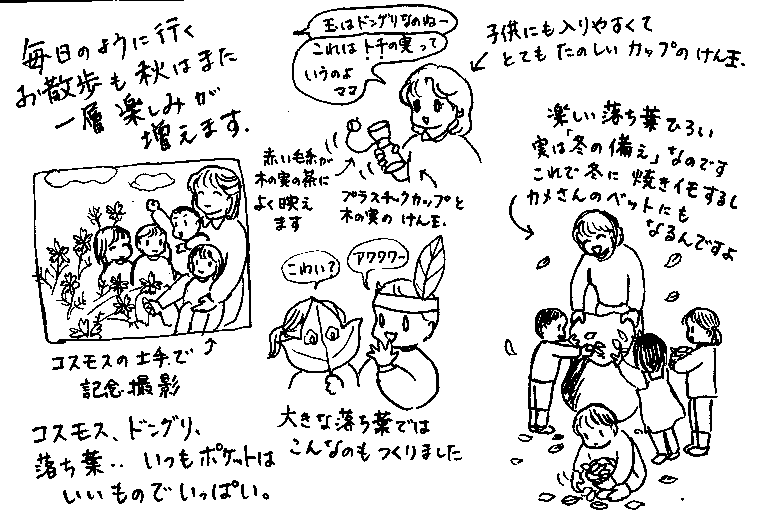 毎日のように行く
お散歩も秋はまた
一層楽しみが
増えます.
コスモスの土手で
記念撮影
コスモス、ドングリ、
落ち葉‥いつもポケットは
いいものでいっぱい。
玉はドングリなのねー
これはトチの実って
いうのよ
ママ
子供にも入りやすくて
とてもたのしいカップのけん玉.
赤い毛糸が
木の実の茶に
よく映え
ます
プラスチックカップと
木の実のけん玉.
こわい?
アワワワー
大きな落ち葉では
こんなのもつくりました
楽しい落ち葉ひろい
実は「冬の備え」なのです
これで冬に焼きイモするし
カメさんのベットにも
なるんですよ